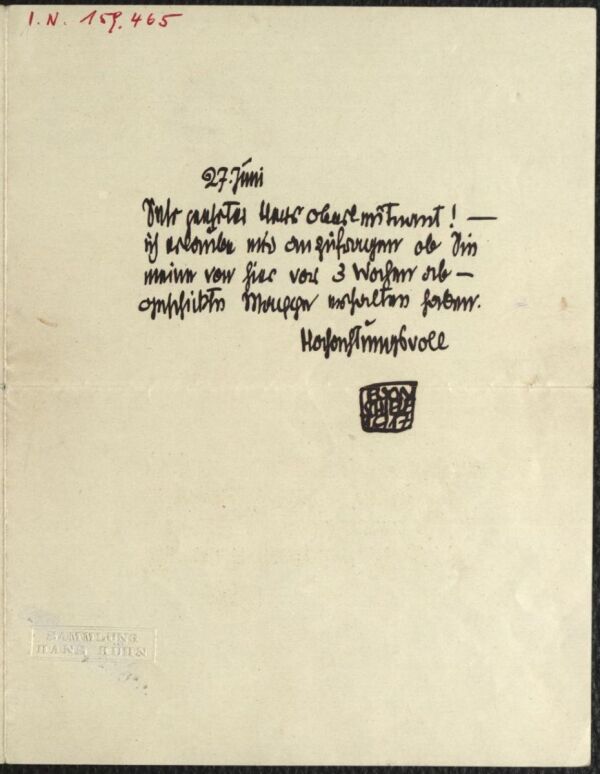 I.N. 159.465
27. Juni
Sehr geehrter Herr oberleutnant! —
ich erlaube mir anzufragen ob Sie
meine von hier vor 3 Wochen ab –
geschickte Mappe erhalten haben.
Hochachtungsvoll
EGON
SCHIELE
1917
SAMMLUNG
HANS KÜHN